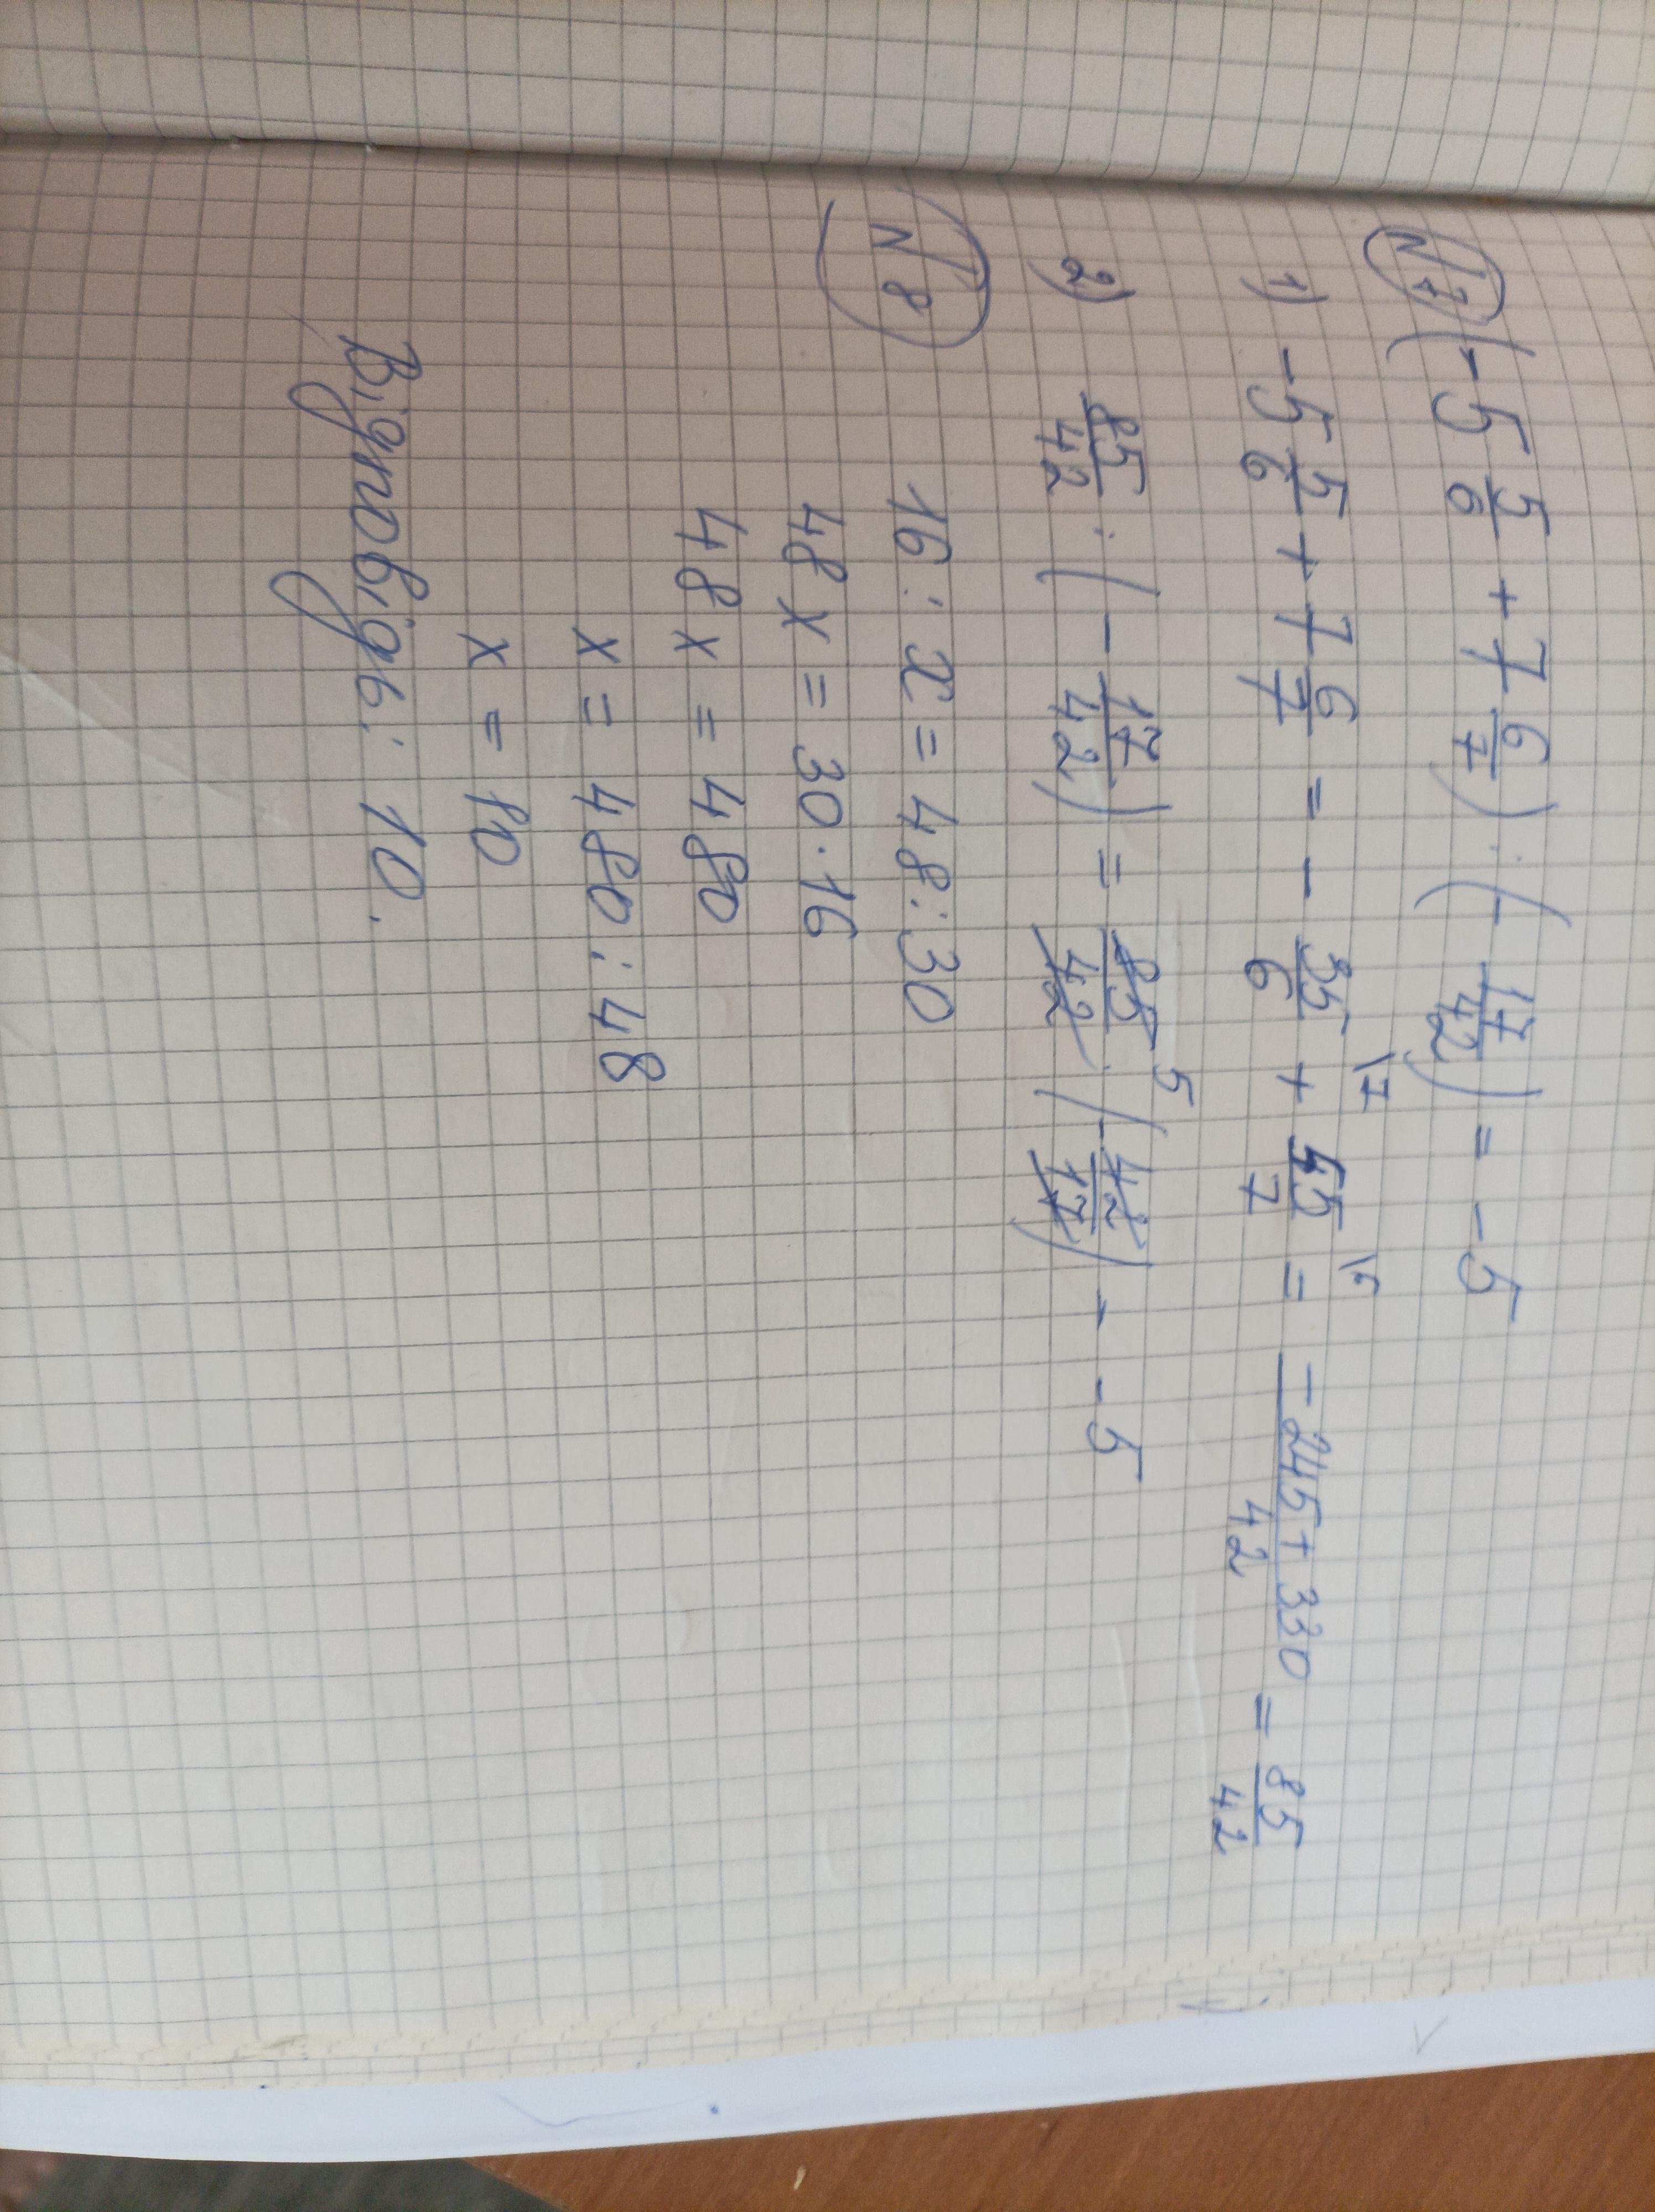 N7 (-5 5/6 + 7 6/7) : (- 17/42) = -5
1) -5 5/6 + 7 6/7 = - 35/6 \7 + 55/7 \6 = (-245 + 330)/42 = 85/42
2) 85/42 : (- 17/42) = 85/42 5 · (- 42/17) = -5
N8
16 : x = 48 : 30
48 x = 30 · 16
48 x = 480
x = 480 : 48
x = 10
Відповідь: 10.